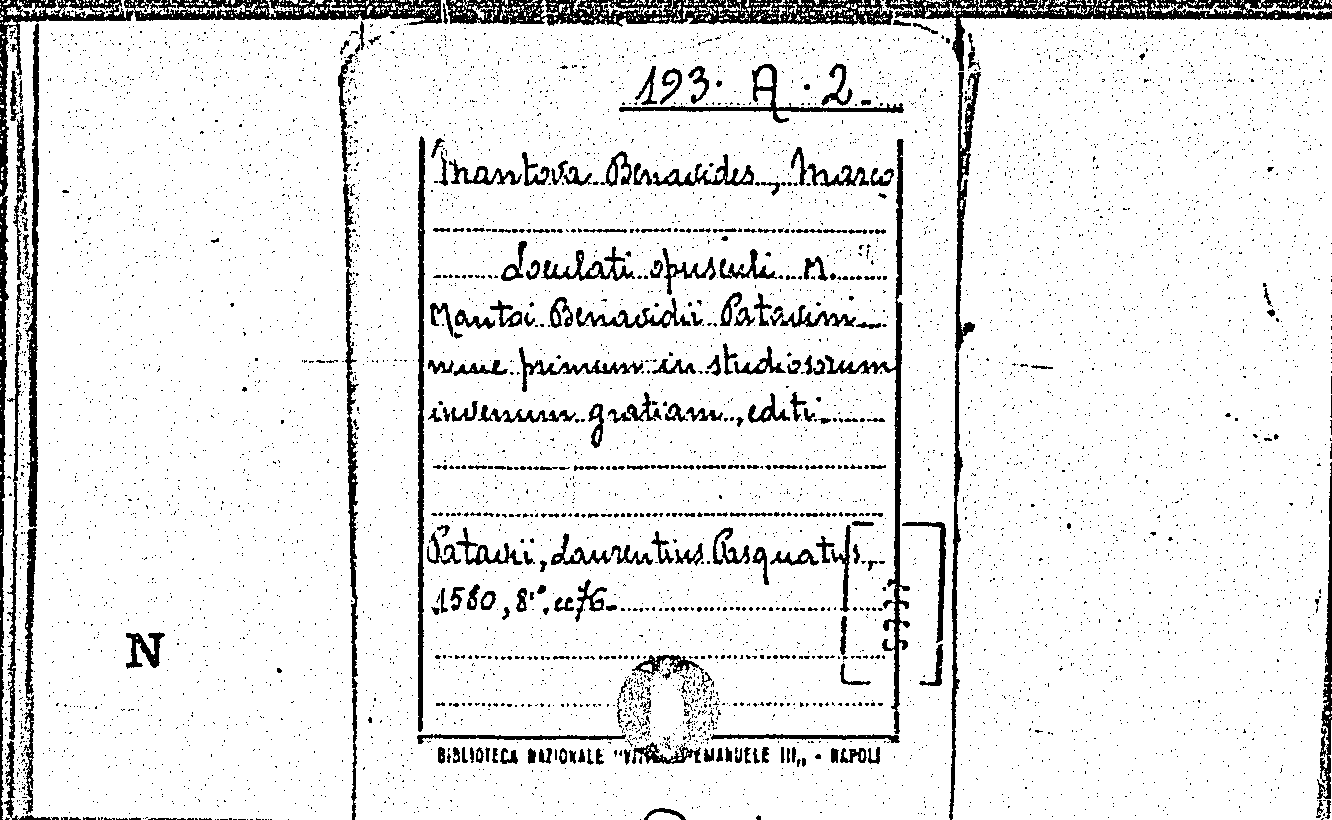 193. A. 2.
Mantova Benavides, Marco
Loculati opusculi M.
Mantoi Benavidii Patavini
nunc primum in studiosorum
iuvenum gratiam, editi.
Patavii, Laurentius Pasquatus,
1580, 8°. cc 76.
N
BIBLIOTECA NAZIONALE "VITT. EMANUELE III„ - NAPOLI